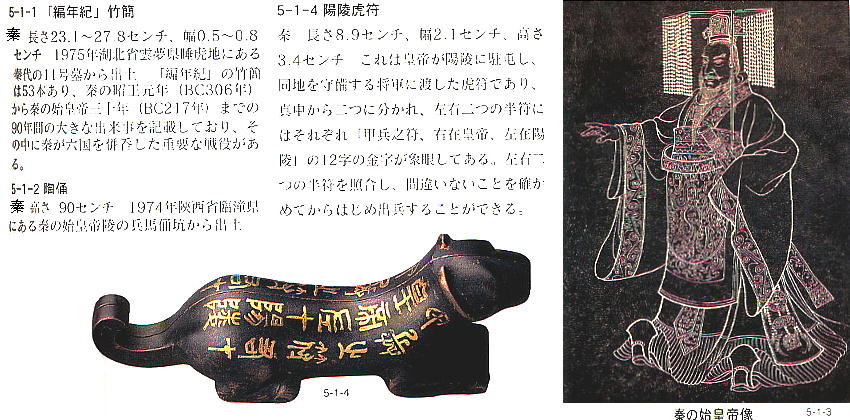 5-1-1「編年紀」竹簡
秦 長さ23.1〜27.8センチ、幅0.5〜0.8
センチ 1975年湖北省雲夢県睡虎地にある
秦代の11号墓から出土 「編年紀」の竹簡
は53本あり、秦の昭王元年（BC306年）
から秦の始皇帝三十年（BC217年）までの
90年間の大きな出来事を記載しており、そ
の中に秦が六国を併呑した重要な戦役があ
る。
5-1-2 陶俑
秦 高さ 90センチ 1974年陝西省臨潼県
にある秦の始皇帝陵の兵馬俑坑から出土
5-1-4 陽陵虎符
秦 長さ8.9センチ、幅2.1センチ、高さ
3.4センチ これは皇帝が陽陵に駐屯し、
同地を守備する将軍に渡した虎符であり、
真中から二つに分かれ、左右二つの半符に
はそれぞれ「甲兵之符、右在皇帝、左在陽
陵」の12字の金字が象眼してある。左右二
つの半符を照合し、間違いないことを確か
めてからはじめ出兵することができる。
5-1-4
秦の始皇帝像 5-1-3